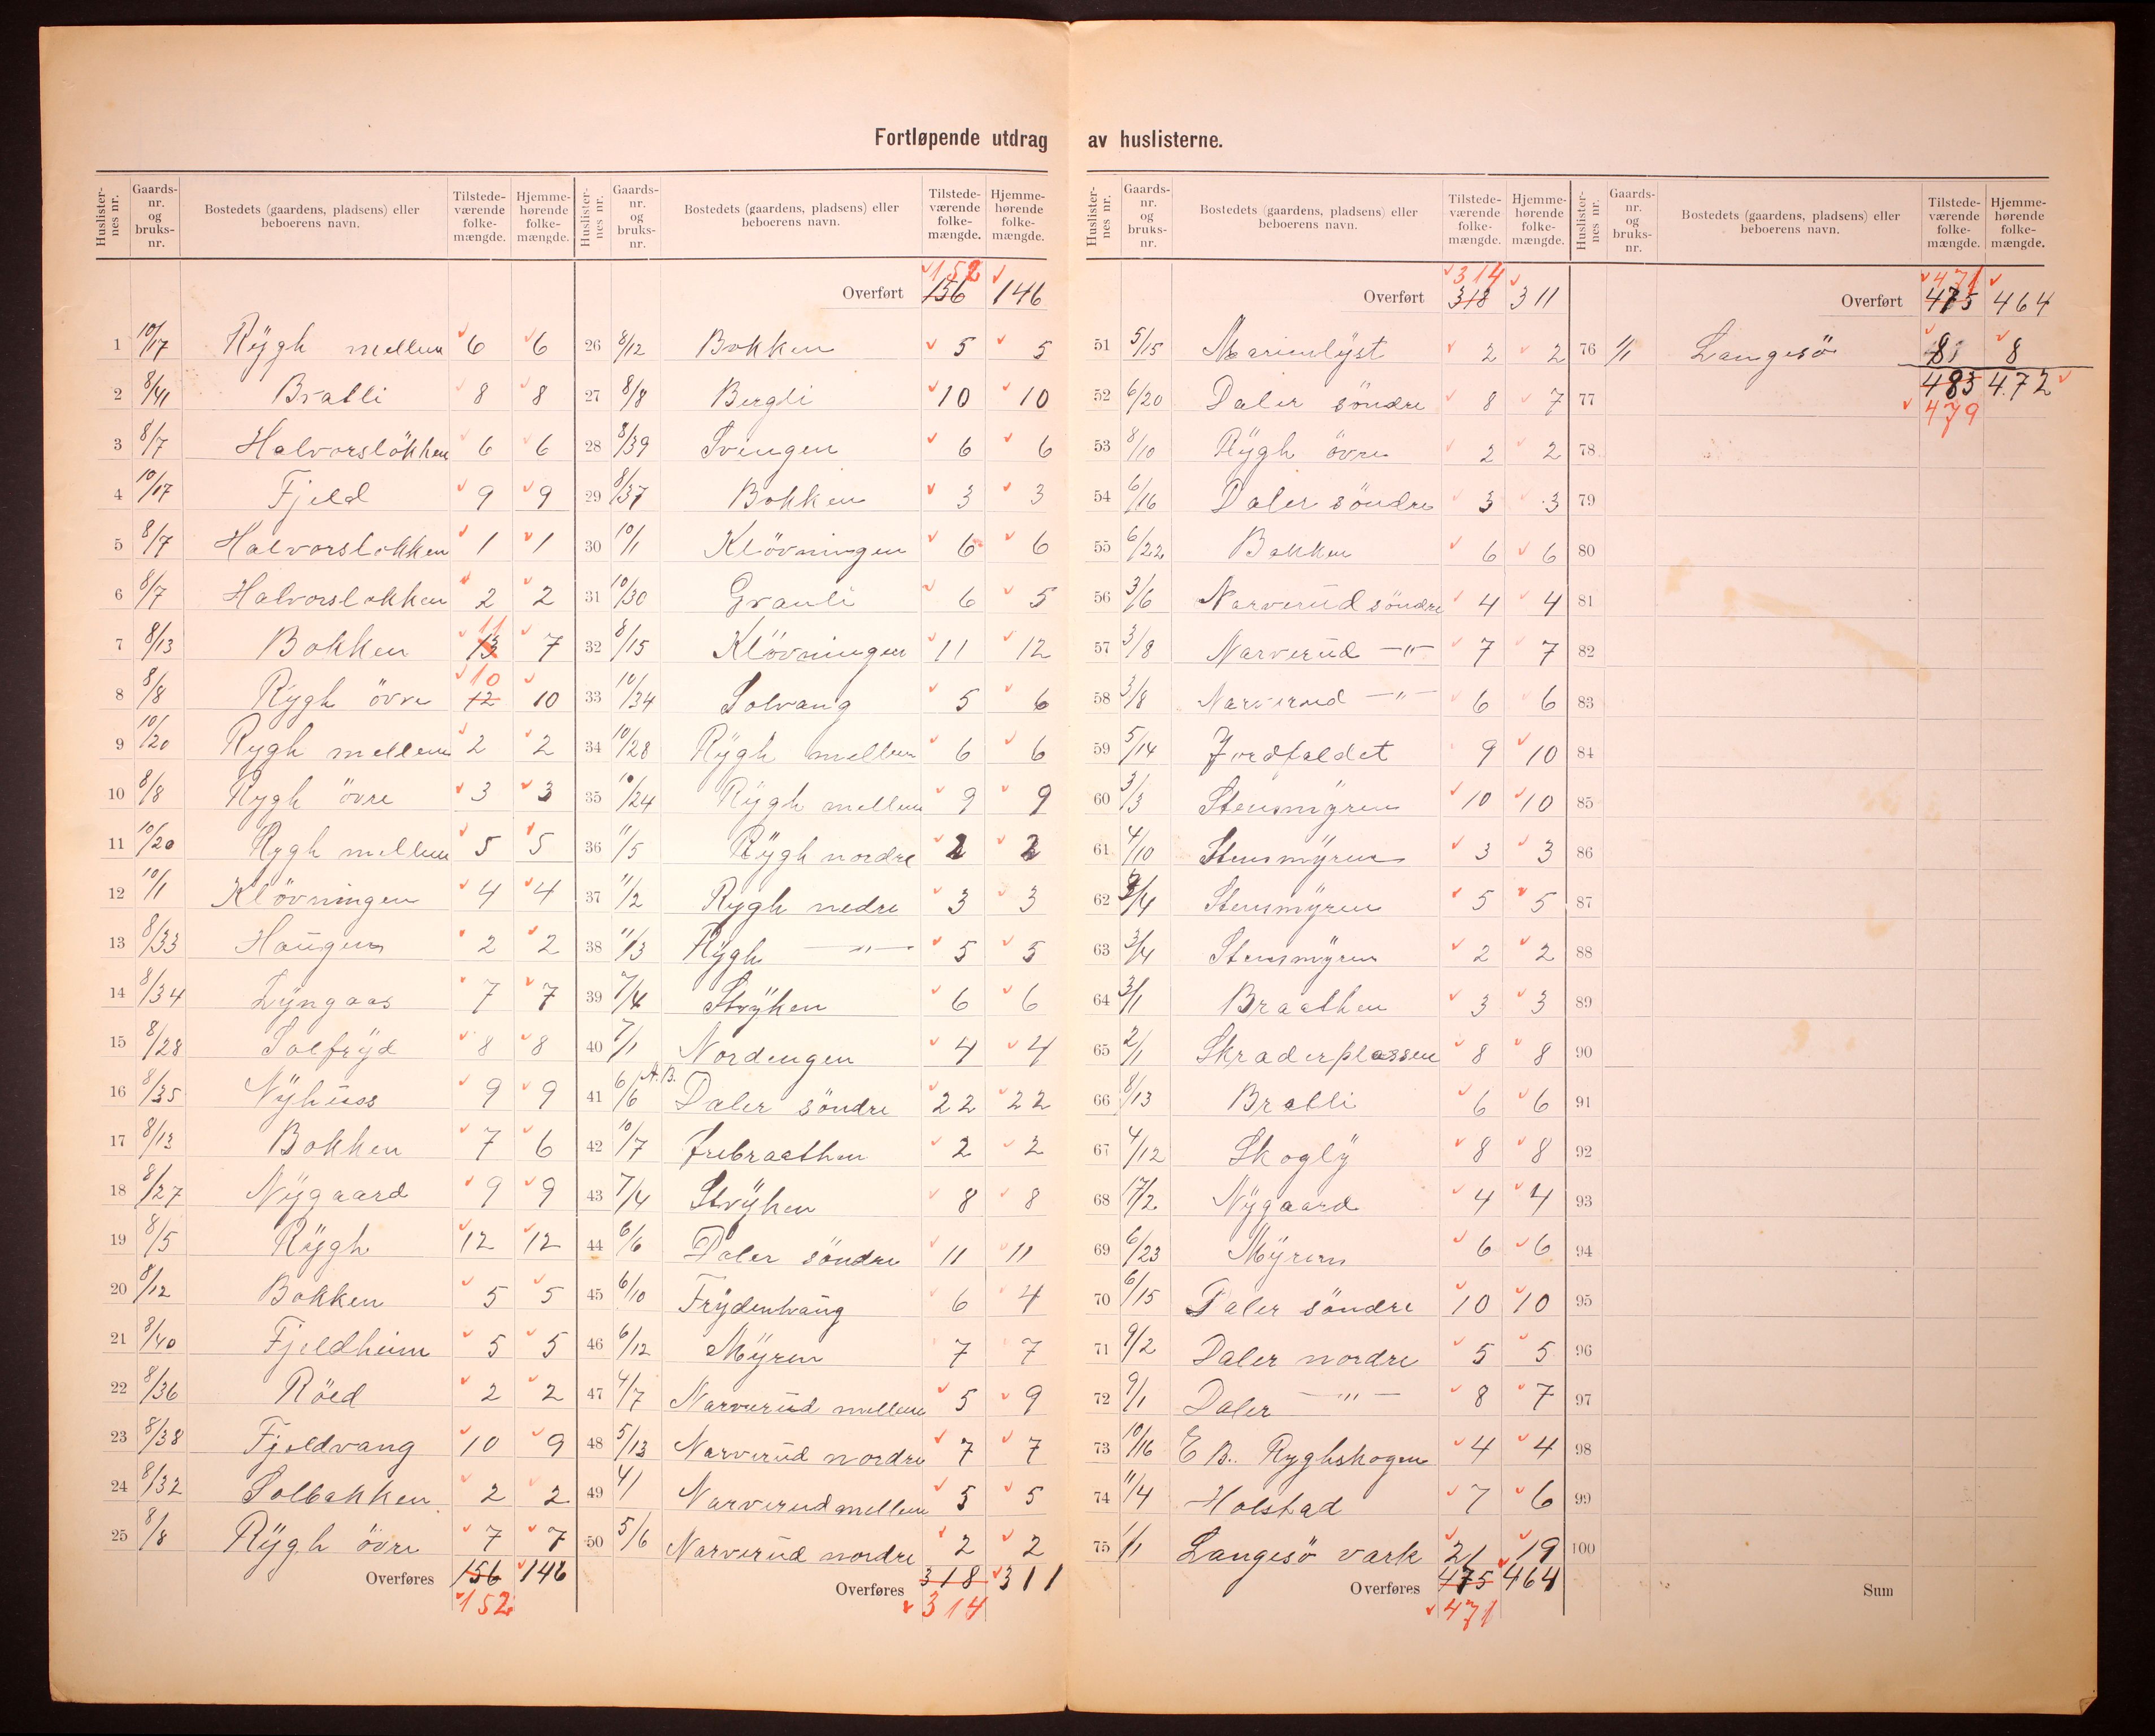 Fortløpende utdrag av huslisterne.
Huslister-nes nr. | Gaards-nr. og bruks-nr. | Bostedets (gaardens, pladsens) eller beboerens navn. | Tilstede-værende folke-mængde. | Hjemme-hørende folke-mængde.
1 10/17 Rÿgh mellem 6 6
2 8/41 Bratli 8 8
3 8/7 Halvorslökken 6 6
4 10/17 Fjeld 9 9
5 8/7 Halvorslokken 1 1
6 8/7 Halvorslokken 2 2
7 8/13 Bakken 13 11 7
8 8/8 Rÿgh övre 12 10 10
9 10/20 Rygh mellem 2 2
10 8/8 Rygh övre 3 3
11 10/20 Rygh mellem 5 5
12 10/1 Klövningen 4 4
13 8/33 Haugen 2 2
14 8/34 Lÿngaas 7 7
15 8/28 Solfrÿd 8 8
16 8/35 Nÿhuss 9 9
17 8/13 Bakken 7 6
18 8/27 Nÿgaard 9 9
19 8/5 Rÿgh 12 12
20 8/12 Bakken 5 5
21 8/40 Fjeldheim 5 5
22 8/36 Röed 2 2
23 8/38 Fjeldvang 10 9
24 8/32 Solbakken 2 2
25 8/8 Rÿgh övre 7 7
Overføres 156 146
152
Huslister-nes nr. | Gaards-nr. og bruks-nr. | Bostedets (gaardens, pladsens) eller beboerens navn. | Tilstede-værende folke-mængde. | Hjemme-hørende folke-mængde.
152
Overført 156 146
26 8/12 Bakken 5 5
27 8/8 Bergli 10 10
28 8/39 Svingen 6 6
29 8/37 Bakken 3 3
30 10/1 Klövningen 6 6
31 10/30 Granli 6 5
32 8/15 Klövningen 11 12
33 10/34 Solvang 5 6
34 10/28 Rÿgh mellem 6 6
35 10/24 Rÿgh mellem 9 9
36 11/5 Rÿgh nordre 2 2
37 11/2 Rygh nedre 3 3
38 11/3 Rÿgh —"— 5 5
39 7/4 Strÿken 6 6
40 7/1 Nordengen 4 4
41 6/6 A.B. Daler söndre 22 22
42 10/7 2 2
43 7/4 Strÿken 8 8
44 6/6 Daler söndre 11 11
45 6/10 Frÿdenhaug 6 4
46 6/12 Mÿren 7 7
47 4/7 Narverud mellem 5 9
48 5/13 Narverud nordre 7 7
49 4/1 Narverud mellem 5 5
50 5/6 Narverud nordre 2 2
Overføres 318 311
314
Huslister-nes nr. | Gaards-nr. og bruks-nr. | Bostedets (gaardens, pladsens) eller beboerens navn. | Tilstede-værende folke-mængde. | Hjemme-hørende folke-mængde.
314
Overført 318 311
51 5/15 Marienlÿst 2 2
52 6/20 Daler söndre 8 7
53 8/10 Rÿgh övre 2 2
54 6/16 Daler söndre 3 3
55 6/22 Bakken 6 6
56 3/6 Narverud söndre 4 4
57 3/8 Narverud —"— 7 7
58 3/8 Narverud —"— 6 6
59 5/14 Jordfaldet 9 10
60 3/3 Stensmÿren 10 10
61 4/10 Stensmÿren 3 3
62 3/4 Stensmÿren 5 5
63 3/4 Stensmÿren 2 2
64 3/1 Braathen 3 3
65 2/1 Skraderplassen 8 8
66 8/13 Bratli 6 6
67 4/12 Skoglÿ 8 8
68 17/2 Nÿgaard 4 4
69 6/23 Mÿren 6 6
70 6/15 Daler söndre 10 10
71 9/2 Daler nordre 5 5
72 9/1 Daler —"— 8 7
73 10/16 E B. Ryghskogen 4 4
74 11/4 Holstad 7 6
75 1/1 Langesö vark 21 19
Overføres 475 464
471
Huslister-nes nr. | Gaards-nr. og bruks-nr. | Bostedets (gaardens, pladsens) eller beboerens navn. | Tilstede-værende folke-mængde. | Hjemme-hørende folke-mængde.
471
Overført 475 464
76 1/1 Langesö 8 8
483 472
77 479
78
79
80
81
82
83
84
85
86
87
88
89
90
91
92
93
94
95
96
97
98
99
100
Sum